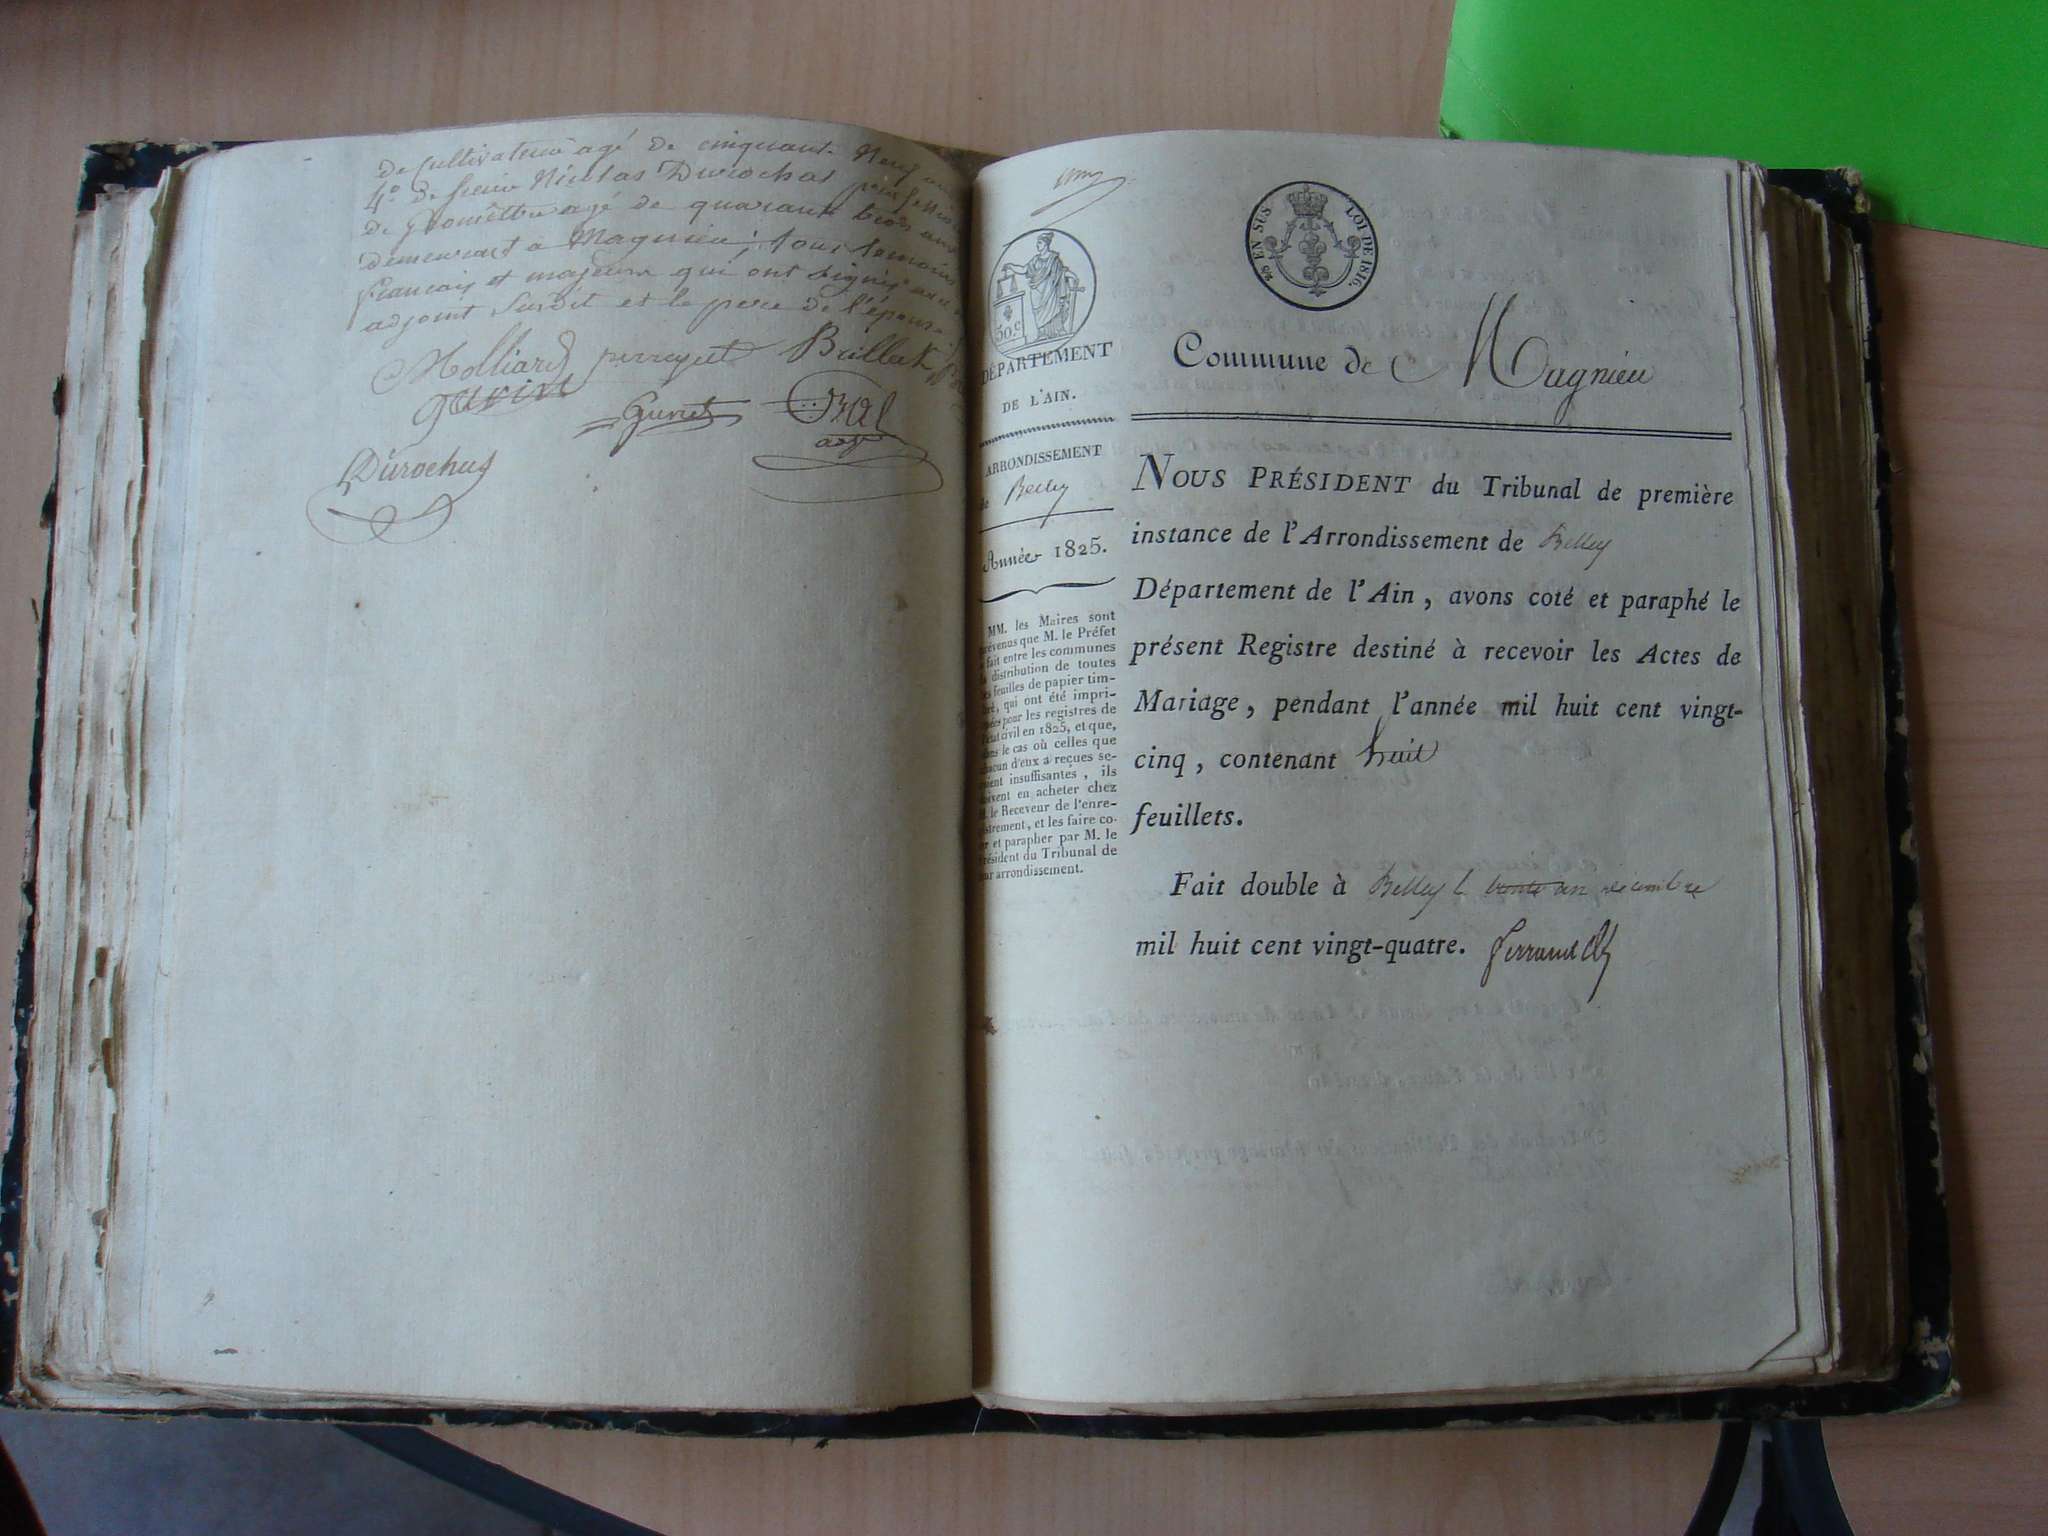 de Cultivateur agé de cinquante Neuf ans
4º de sieur Nicolas Durochat profession
de Géomêtre agé de quarante trois ans
demeurant a Magnieu; tous temoins
francais et majeurs qui ont Signés avec
adjoint Susdit et le pere de l'épouse
Molliard perrayet Brillat
gavin Guvet
Durochat
30.c
DÉPARTEMENT
DE L'AIN.
ARRONDISSEMENT
de Belley
Année 1825.
MM. les Maires sont
prévenus que M. le Préfet
fait entre les communes
la distribution de toutes
les feuilles de papier tim-
bré, qui ont été impri-
mées pour les registres de
l'état civil en 1825, et que,
dans le cas où celles que
chacun d'eux a reçues se-
raient insuffisantes, ils
doivent en acheter chez
M. le Receveur de l'enre-
gistrement, et les faire co-
ter et parapher par M. le
Président du Tribunal de
leur arrondissement.
EN SUS LOI DE 1816.
Commune de Magnieu
NOUS PRÉSIDENT du Tribunal de première
instance de l'Arrondissement de Belley
Département de l'Ain, avons coté et paraphé le
présent Registre destiné à recevoir les Actes de
Mariage, pendant l'année mil huit cent vingt-
cinq, contenant huit
feuillets.
Fait double à Belley le trente un décembre
mil huit cent vingt-quatre. ferrand